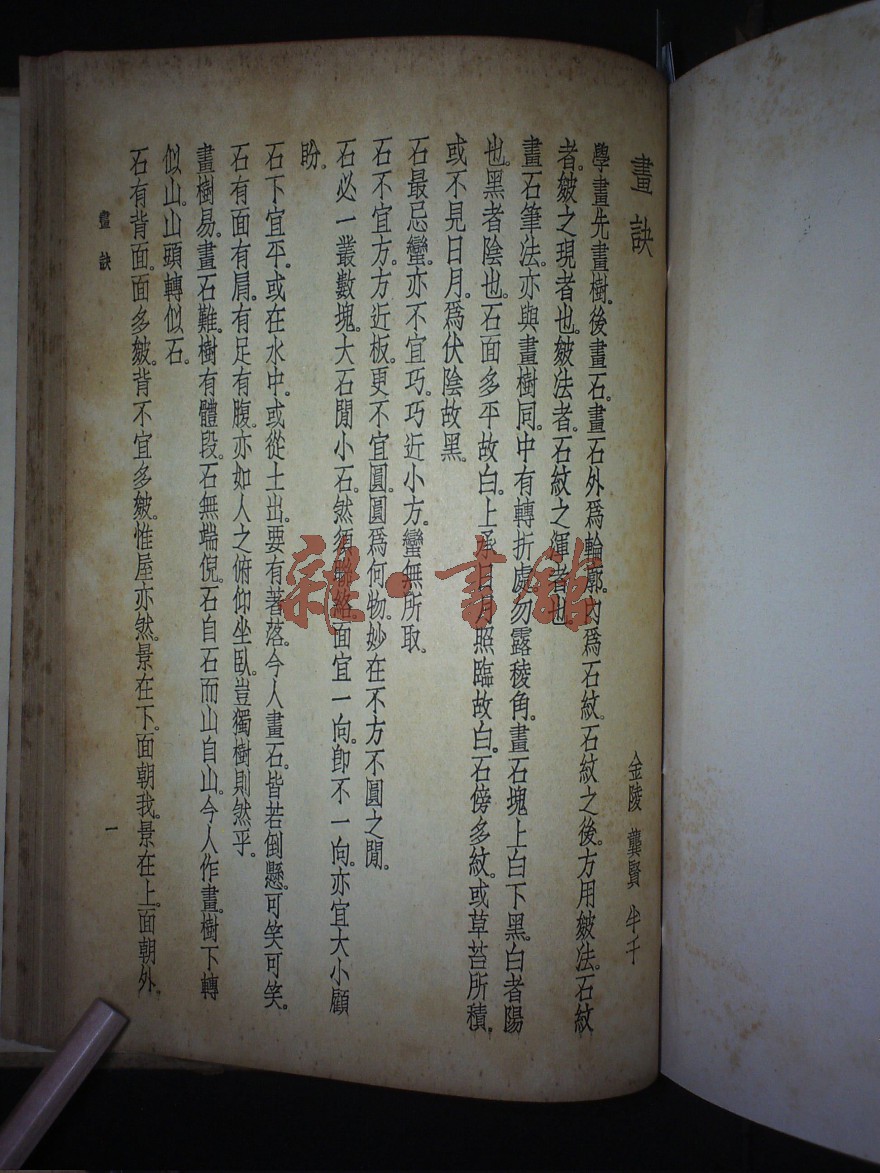 畫訣
金陵 龔賢 半千
學畫先畫樹。後畫石。畫石外爲輪廓。內爲石紋。石紋之後。方用皴法。石紋
者。皴之現者也。皴法者。石紋之渾者也。
畫石筆法。亦與畫樹同。中有轉折處。勿露稜角。畫石塊上白下黑。白者陽
也。黑者陰也。石面多平故白。上承日月照臨故白。石傍多紋。或草苔所積。
或不見日月。爲伏陰故黑。
石最忌蠻。亦不宜巧。巧近小方。蠻無所取。
石不宜方。方近板。更不宜圓。圓爲何物。妙在不方不圓之閒。
石必一叢數塊。大石閒小石。然須聯絡。面宜一向。卽不一向。亦宜大小顧
盼。
石下宜平。或在水中。或從土出。要有著落。今人畫石。皆若倒懸。可笑可笑。
石有面有肩。有足有腹。亦如人之俯仰坐臥。豈獨樹則然乎。
畫樹易。畫石難。樹有體段。石無端倪。石自石而山自山。今人作畫。樹下轉
似山。山頭轉似石。
石有背面。面多皴。背不宜多皴。惟屋亦然。景在下。面朝我。景在上。面朝外。
畫訣
一
雜·書館